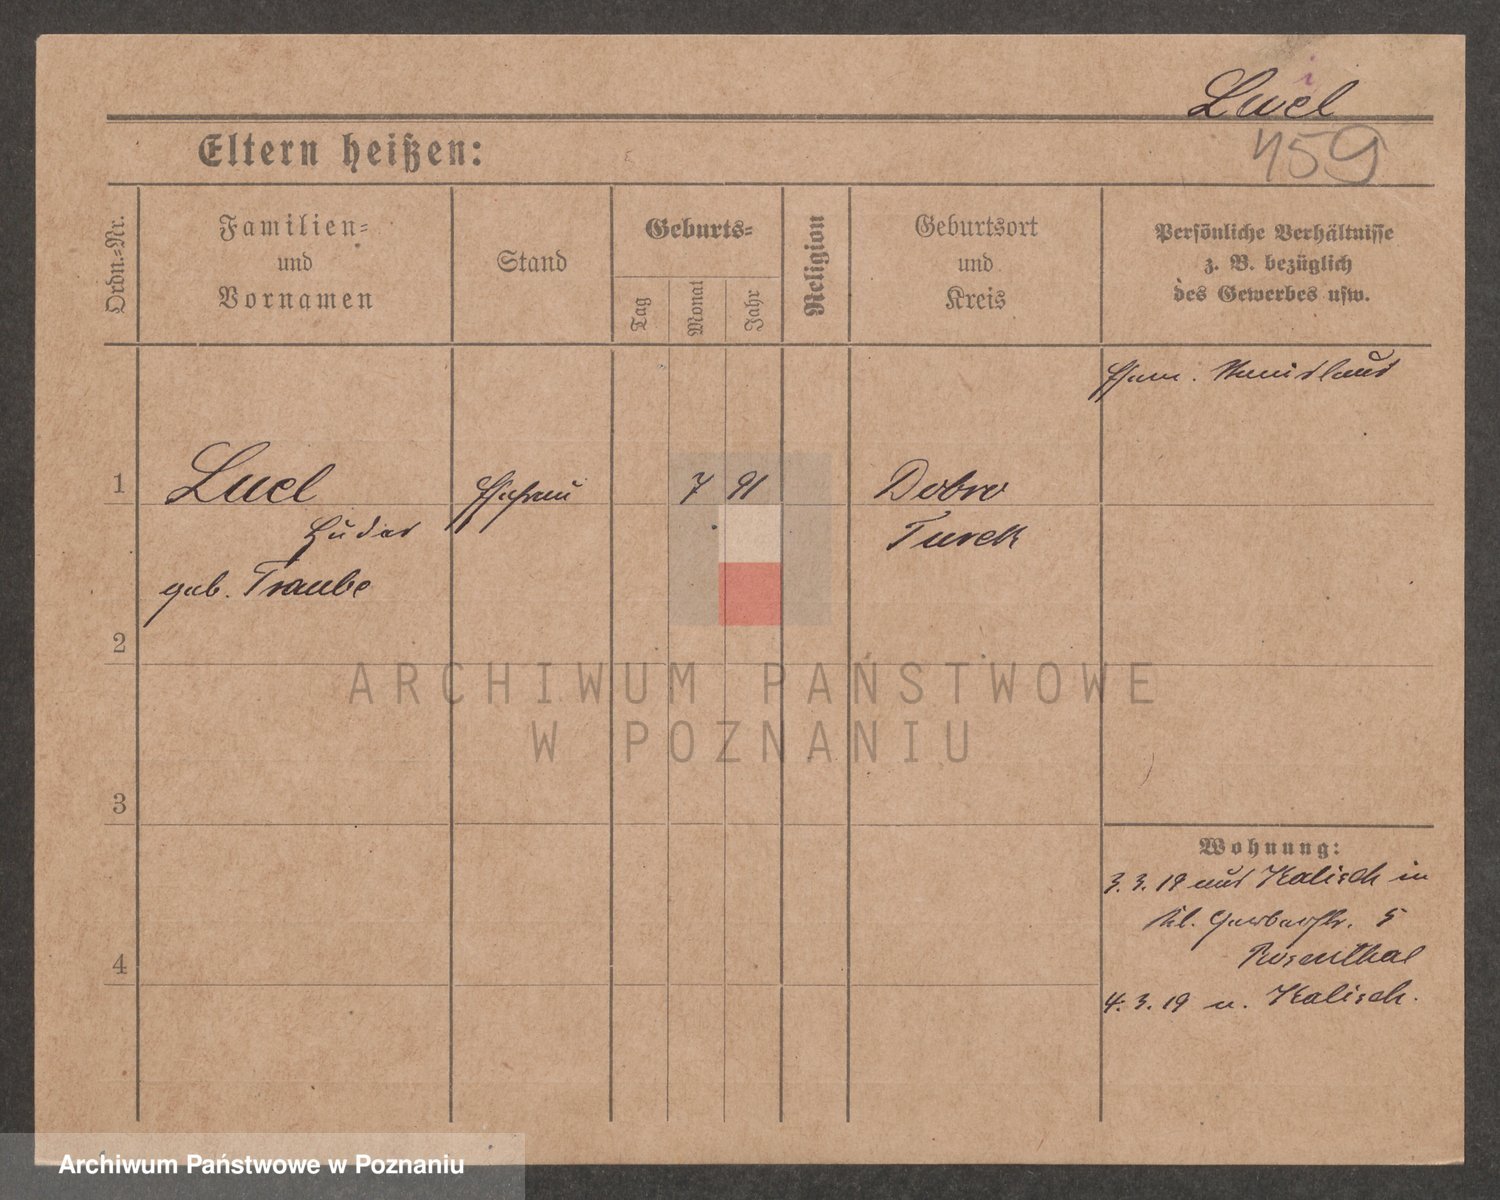 Luel
i
459
Eltern heißen:
Ordn.-Nr.
Familien-
und
Vornamen
Stand
Geburts-
Tag
Monat
Jahr
Religion
Geburtsort
und
Kreis
Persönliche Verhältnisse
z. B. bezüglich
des Gewerbes usw.
1
Luel
7 91
Dobro
Turek
geb. Traube
2
3
4
Wohnung:
3.3.19 aus Kalisch in
Kl. Gerberstr. 5
Rosenthal
4.3.19 n. Kalisch.
ARCHIWUM PAŃSTWOWE
W POZNANIU
Archiwum Państwowe w Poznaniu